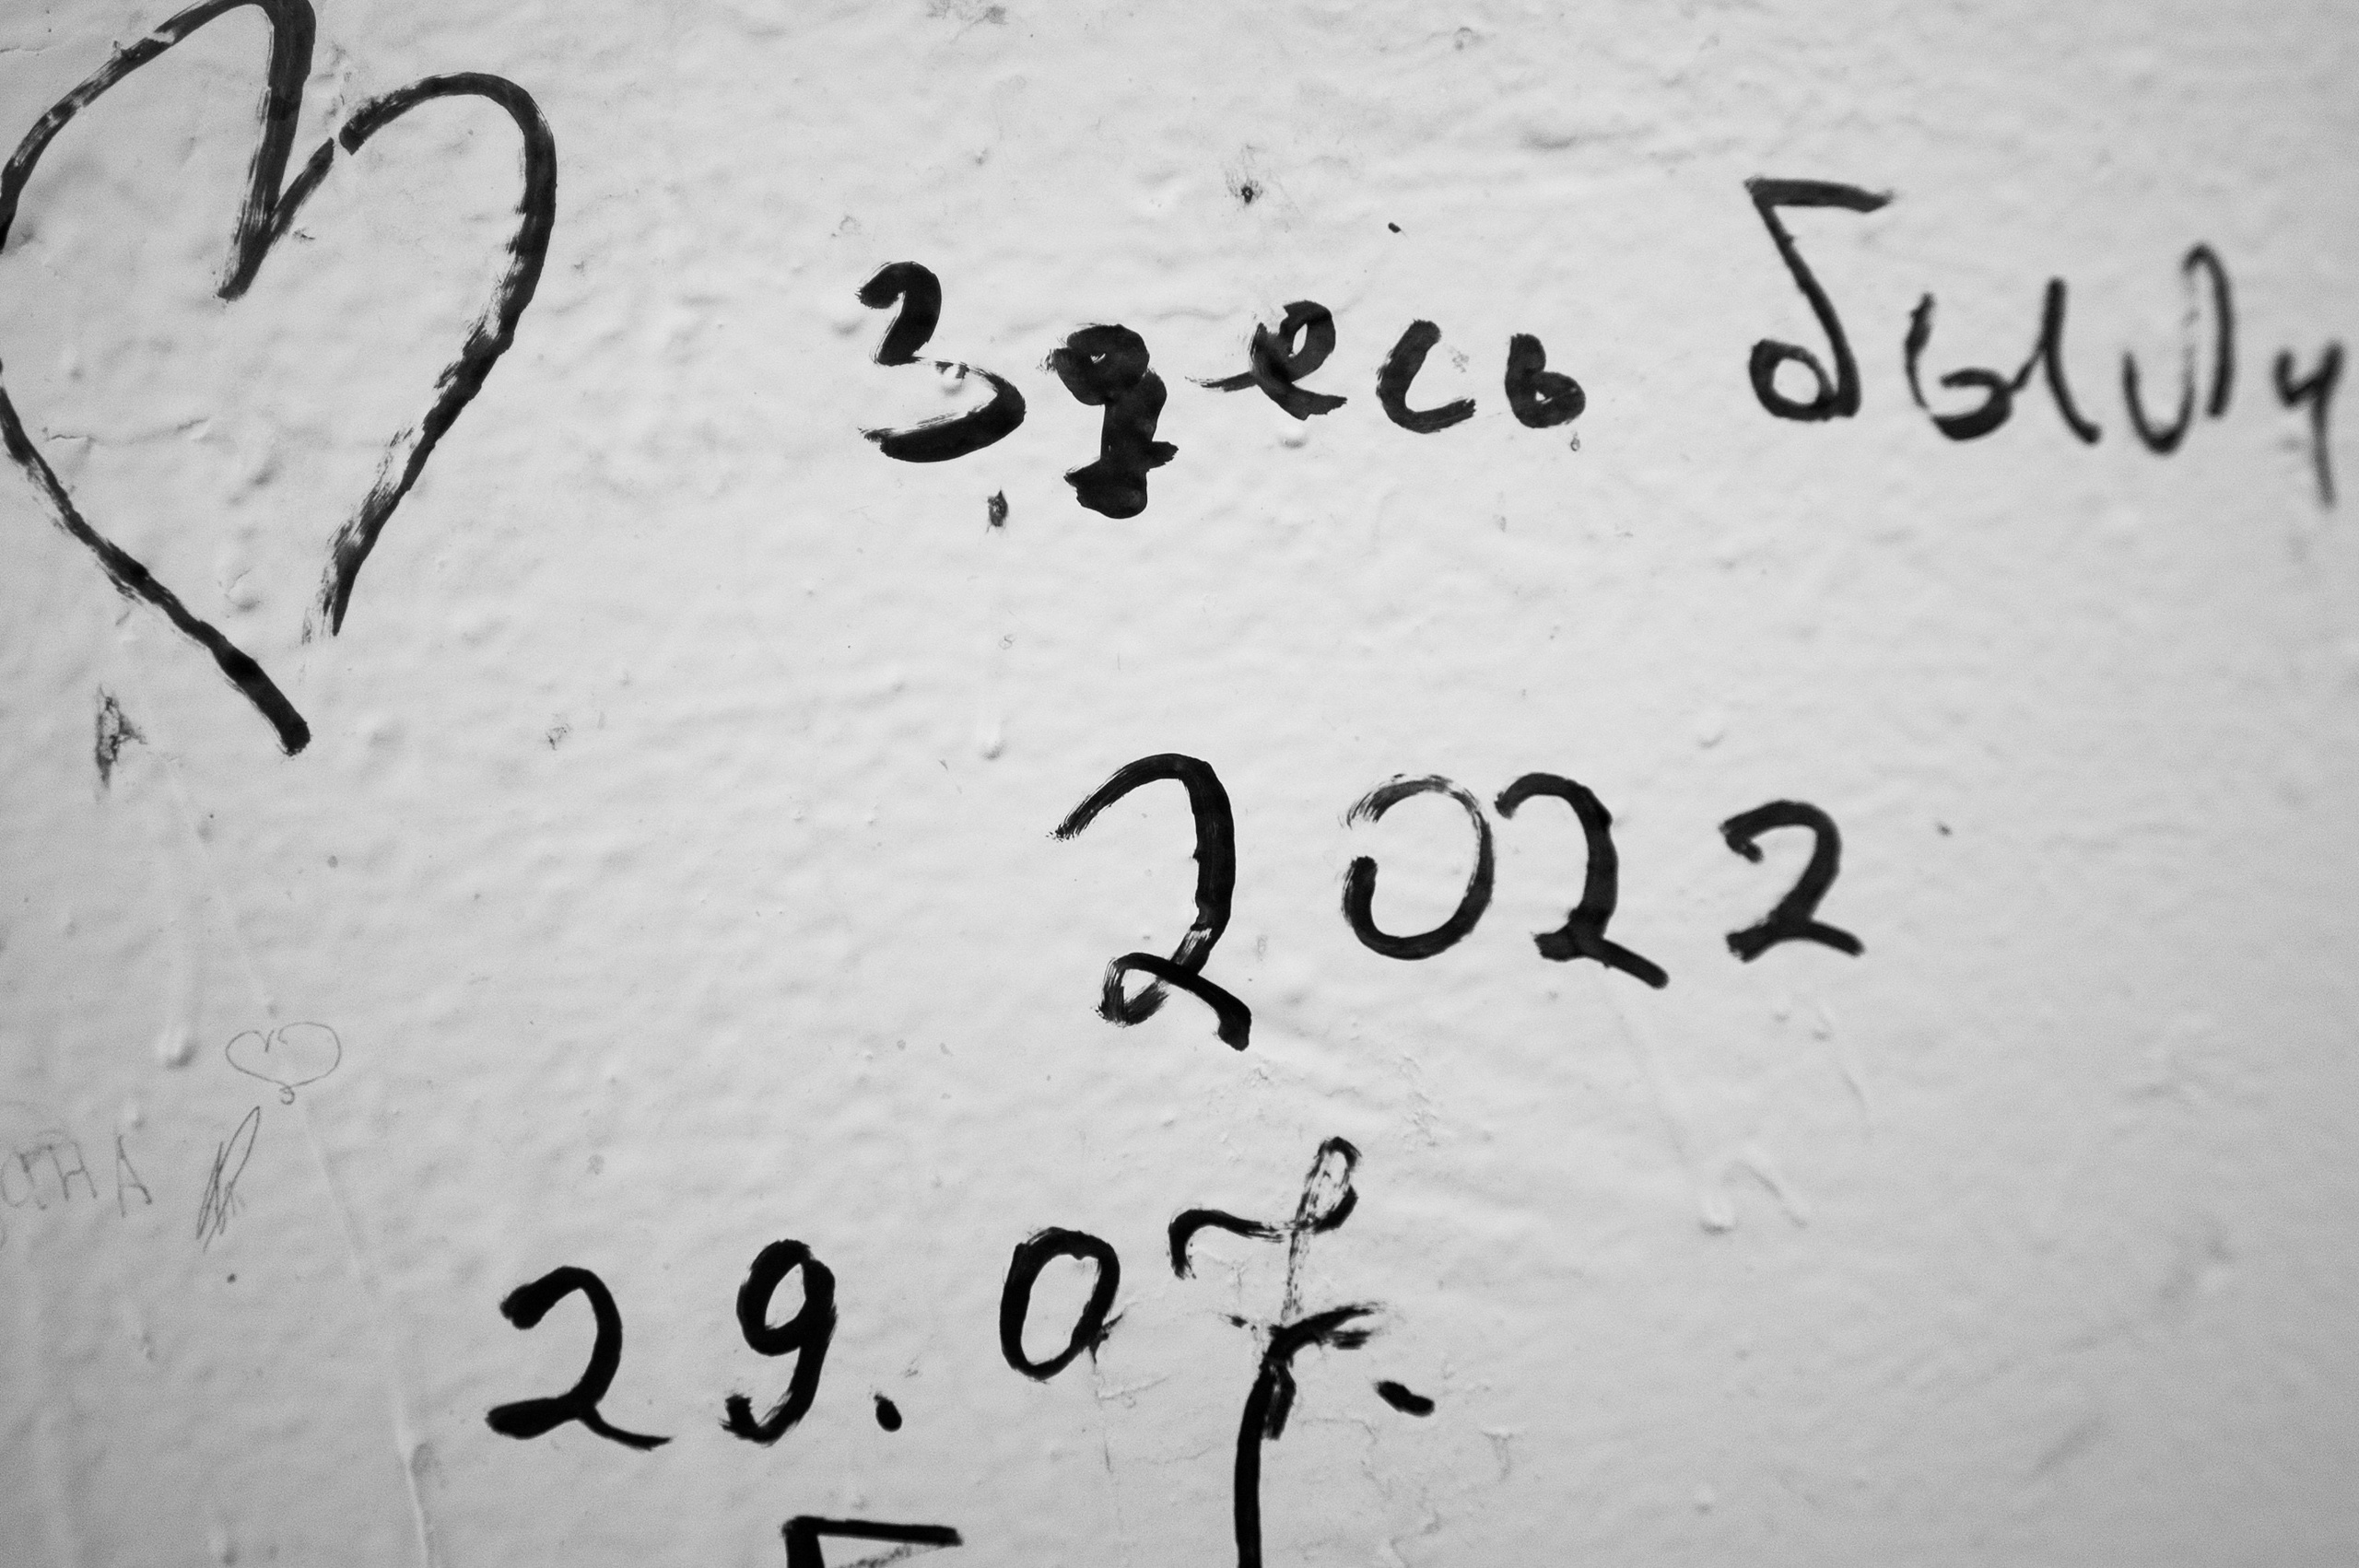 Здесь были
2022
29.07.